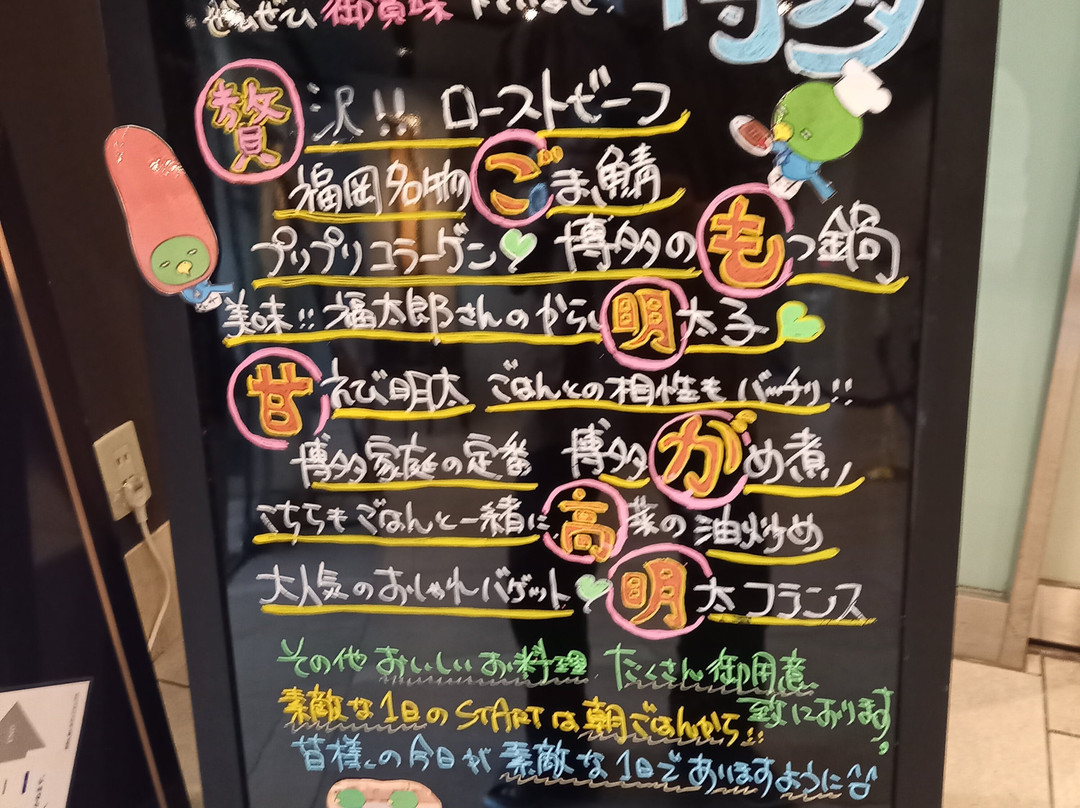 ぜひぜひ 御賞味 下さいませ!
博多
贅沢!! ローストビーフ
福岡名物 ごま鯖
プリプリコラーゲン 博多のもつ鍋
美味!! 福太郎さんのからし明太子
甘えび明太 ごはんとの相性もバッチリ!!
博多家庭の定番 博多がめ煮
こちらもごはんと一緒に 高菜の油炒め
大人気のおしゃれバゲット 明太フランス
その他 おいしいお料理 たくさん御用意
致しております
素敵な1日のSTARTは朝ごはんから!!
皆様の今日が素敵な1日でありますように